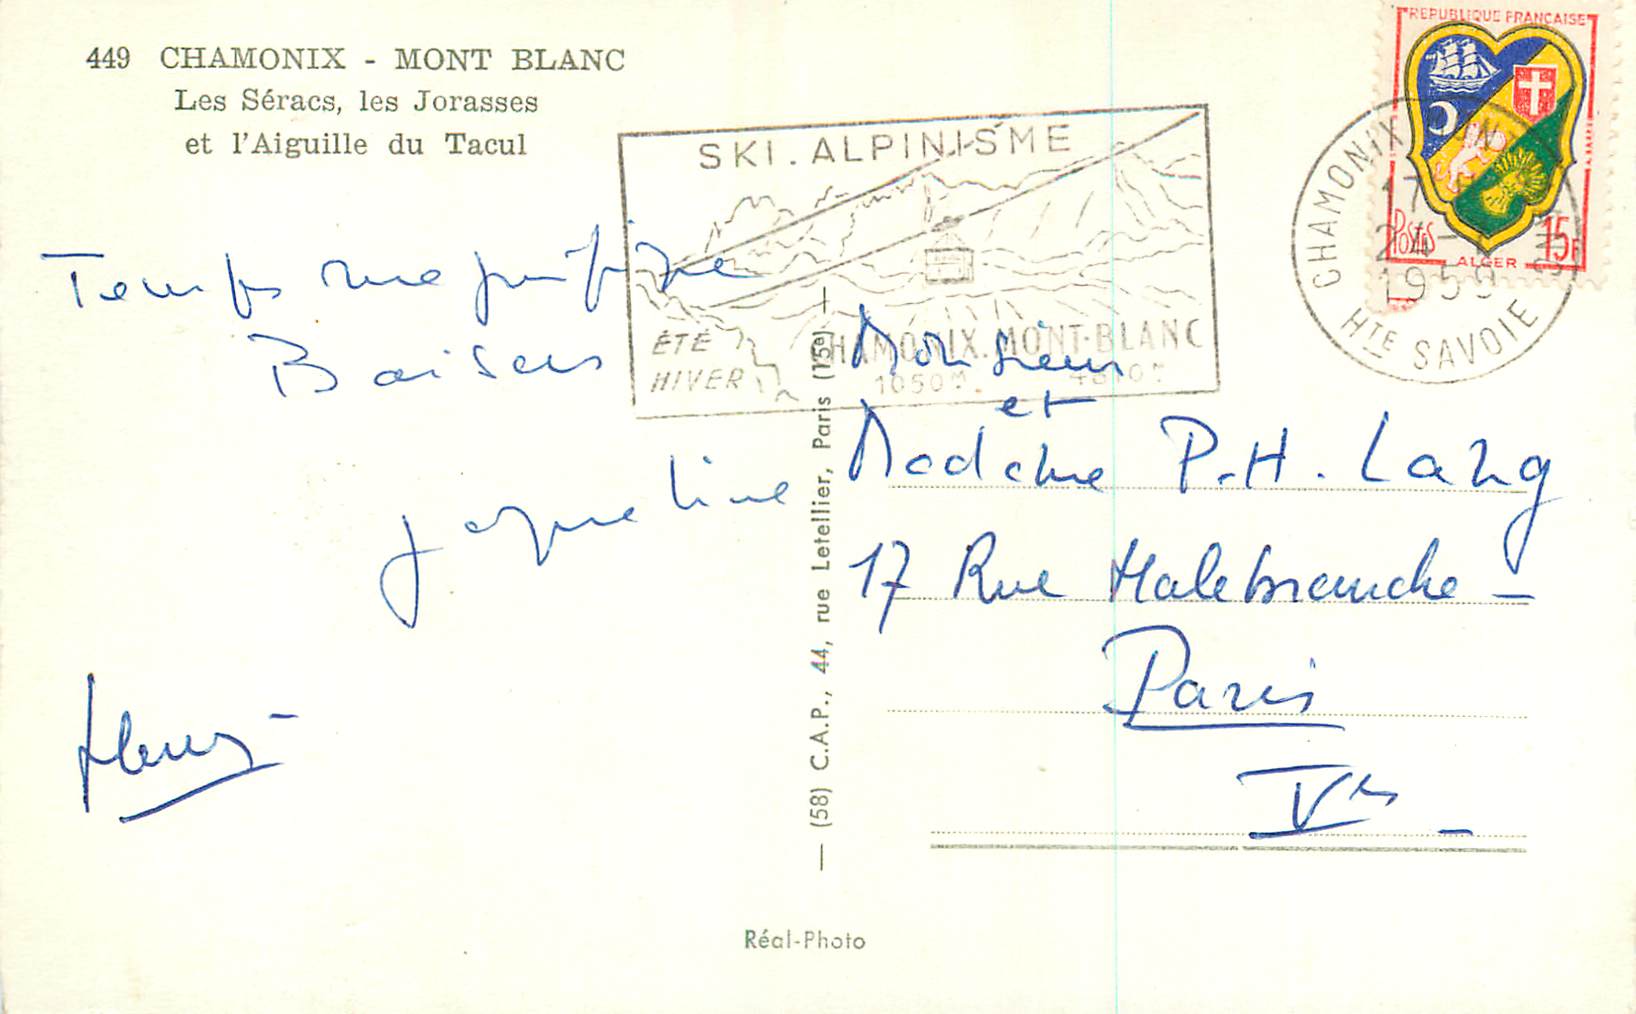 449 CHAMONIX - MONT BLANC
Les Séracs, les Jorasses
et l'Aiguille du Tacul
SKI . ALPINISME
ÉTÉ
HIVER
CHAMONIX . MONT-BLANC
1050M.
REPUBLIQUE FRANÇAISE
Postes
15F
ALGER
CHAMONIX
17
1959
HTE SAVOIE
Temps magnifique
Baisers
Jacqueline
Henry -
Monsieur
et
Madame P.H. Lang
17 Rue Malebranche -
Paris
Ve -
— (58) C.A.P., 44, rue Letellier, Paris (15e) —
Réal-Photo